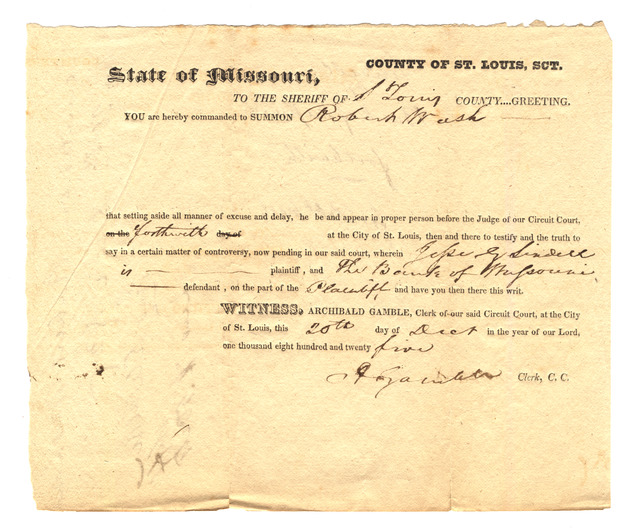 COUNTY OF ST. LOUIS, SCT.
State of Missouri,
TO THE SHERIFF OF St Louis COUNTY....GREETING.
YOU are hereby commanded to SUMMON Robert Wash
that setting aside all manner of excuse and delay, he be and appear in proper person before the Judge of our Circuit Court,
on the forthwith day of at the City of St. Louis, then and there to testify and the truth to
say in a certain matter of controversy, now pending in our said court, wherein Jesse G Lindell
is plaintiff, and The Bank of Missouri
defendant, on the part of the Plaintiff, and have you then there this writ.
WITNESS, ARCHIBALD GAMBLE, Clerk of our said Circuit Court, at the City
of St. Louis, this 20th day of Dect in the year of our Lord,
one thousand eight hundred and twenty five
A Gamble Clerk, C. C.